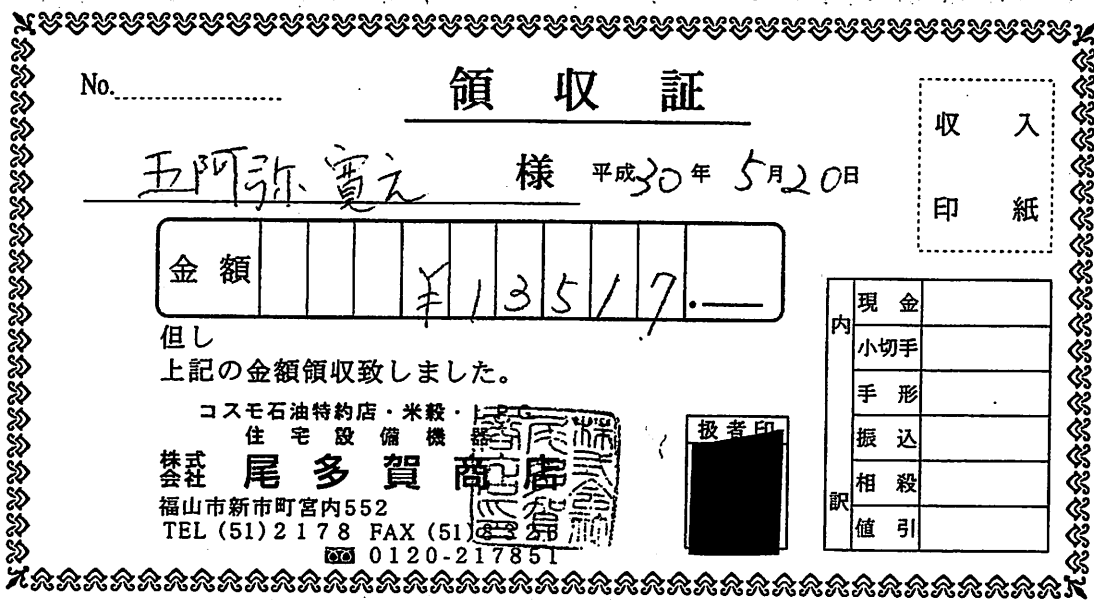 No.
領収証
五阿弥寛之 様 平成30年5月20日
収入
印紙
金額 ¥13517.—
但し
上記の金額領収致しました。
コスモ石油特約店・米穀・LPG
住宅設備機器
株式会社 尾多賀商店
福山市新市町宮内552
TEL (51)2178 FAX (51)8326
0120-217851
扱者印
内訳
現金
小切手
手形
振込
相殺
値引